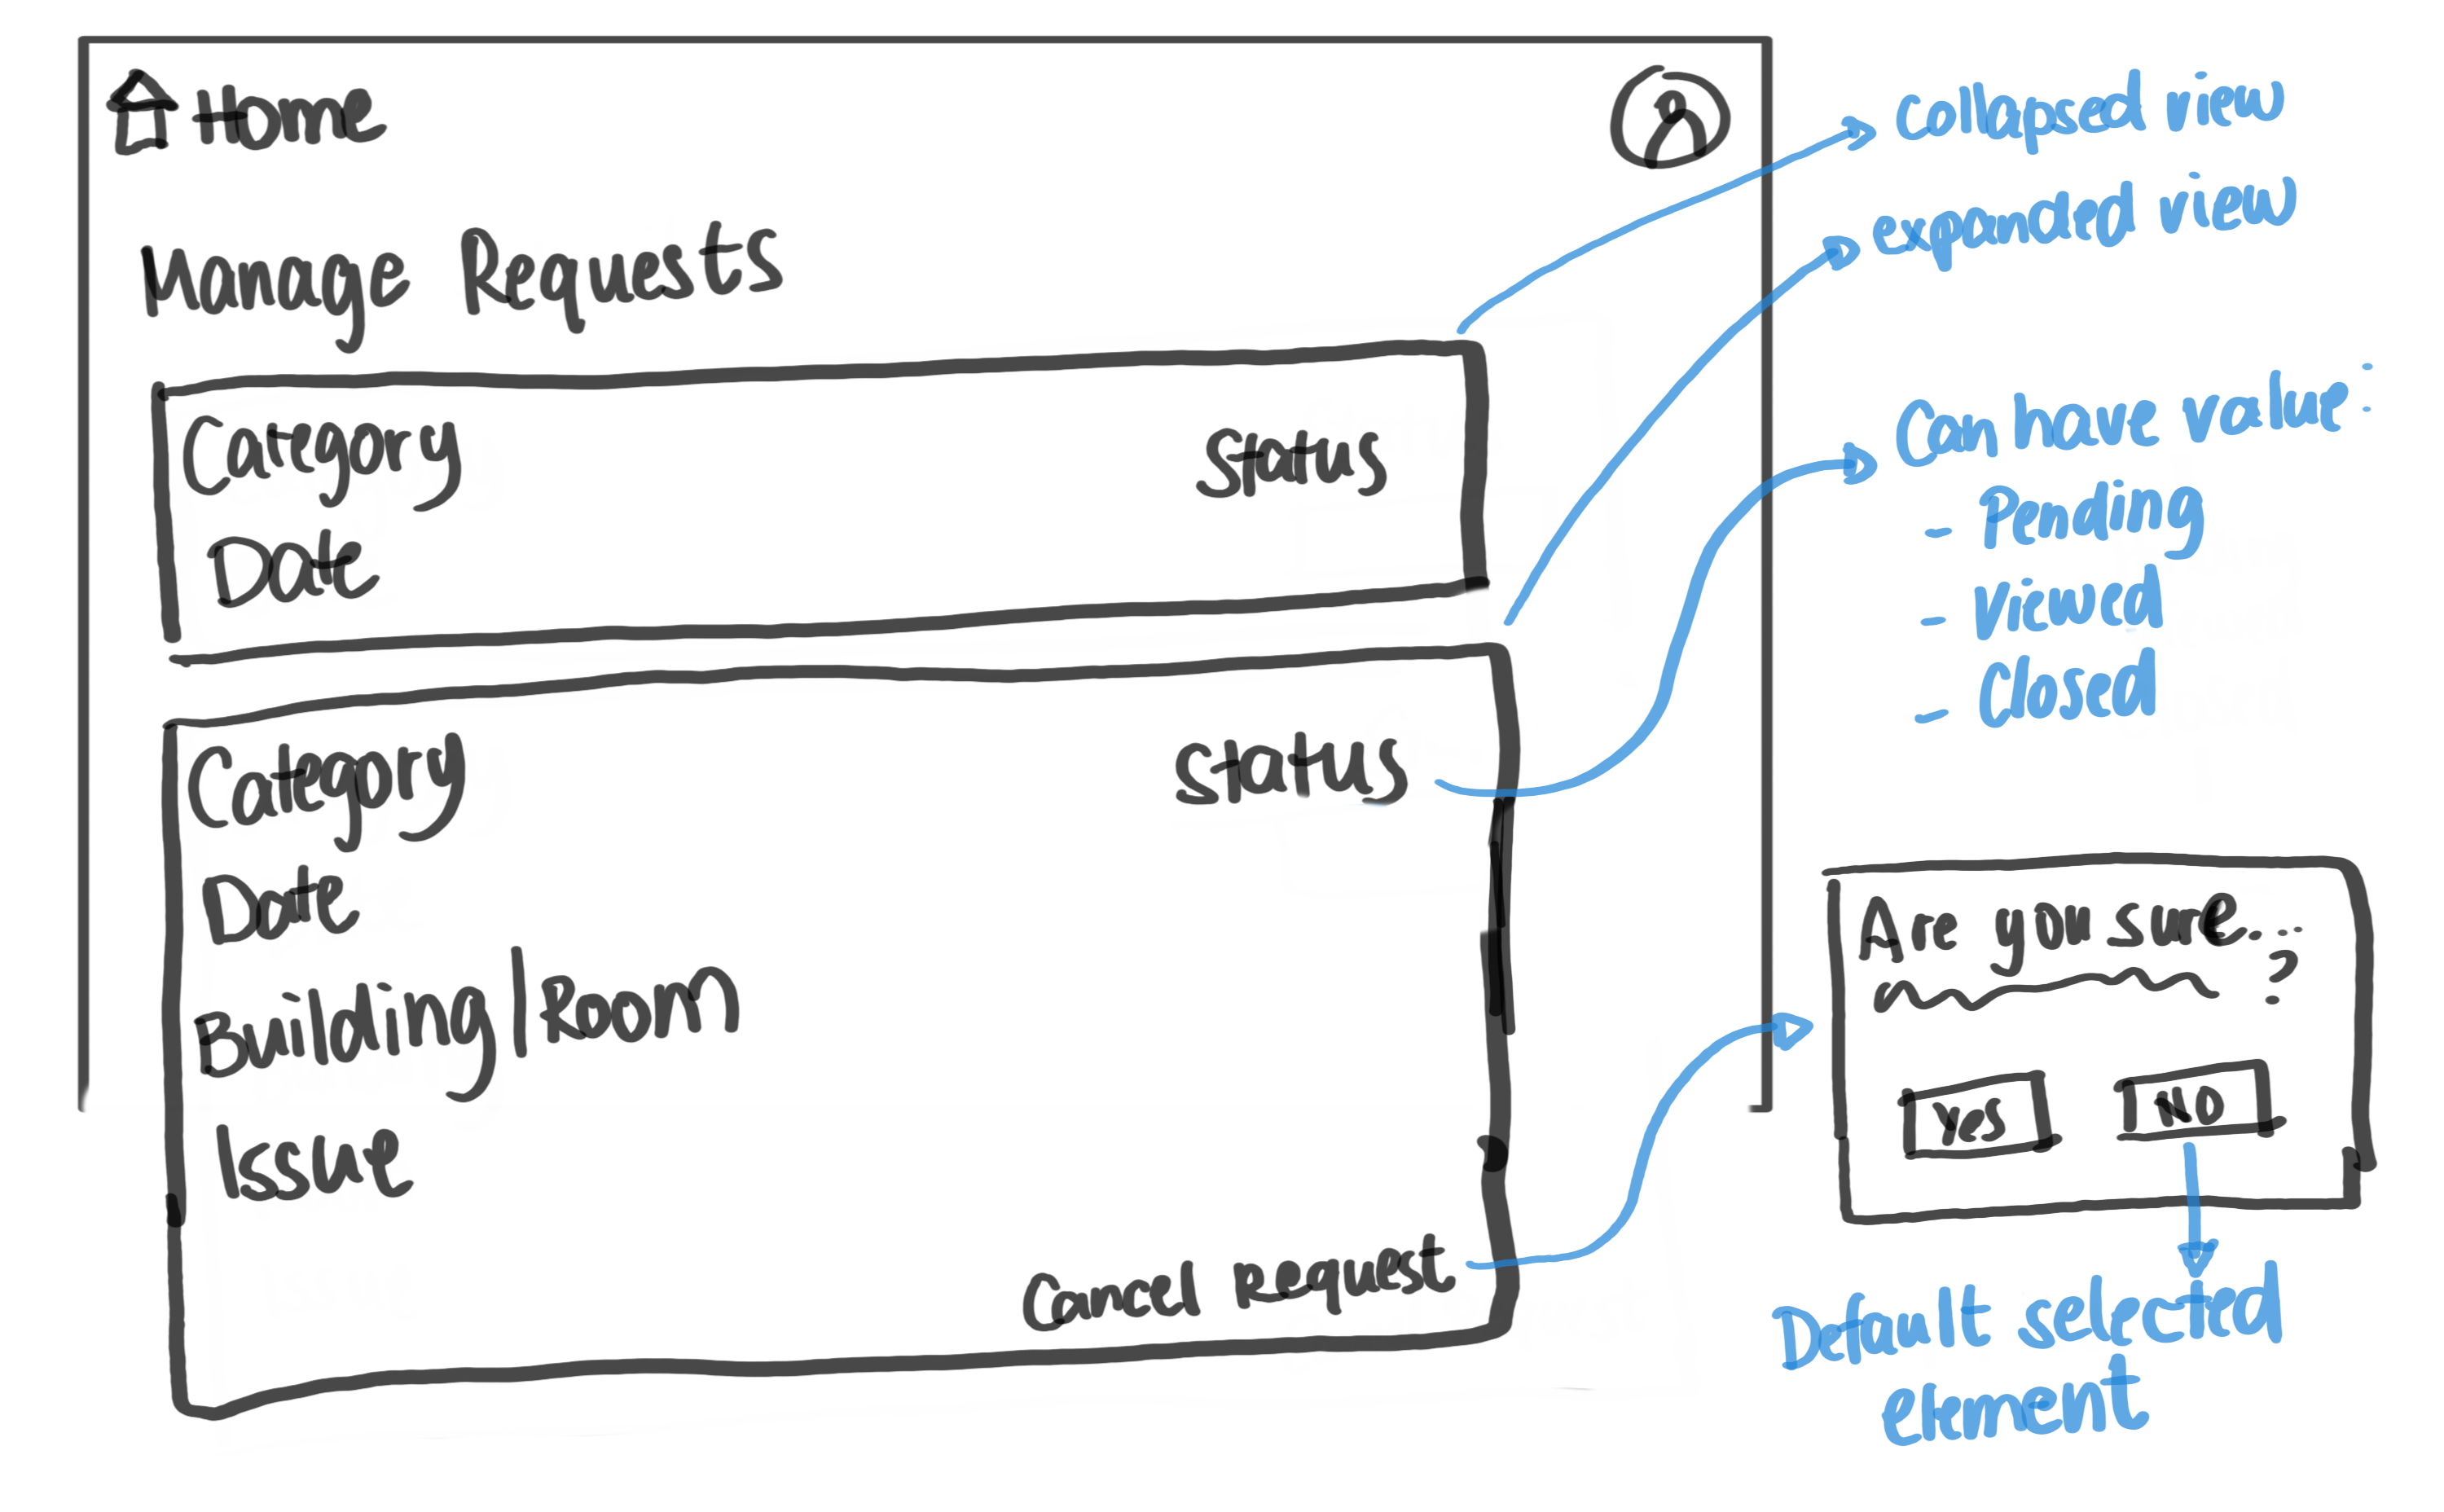 Home
Manage Requests
Category
Status
Date
Category
Status
Date
Building/Room
Issue
Cancel Request
collapsed view
expanded view
Can have value:
- Pending
- Viewed
- Closed
Are you sure....
?
Yes
NO
Default selected
element